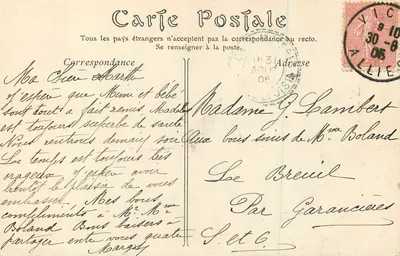 Carte Postale
Tous les pays étrangers n'acceptent pas la correspondance au recto.
Se renseigner à la poste.
Correspondance
Adresse
VIC
9 10
30-8
06
ALLIER
Ma chère Marthe
j'espère que Mimi et bébé
sont tout à fait remis Madel
est toujours superbe de santé
Nous rentrons demain soir
Le temps est toujours très
orageux j'espère avoir
bientôt le plaisir de vous
embrasser Mes bons
compliments à Mr. Mme
Boland Bons baisers à
partager entre vous quatre
Margy
Madame G. Lambert
aux bons soins de Mme Boland
Le Breuil
Par Garancières
S. et O.